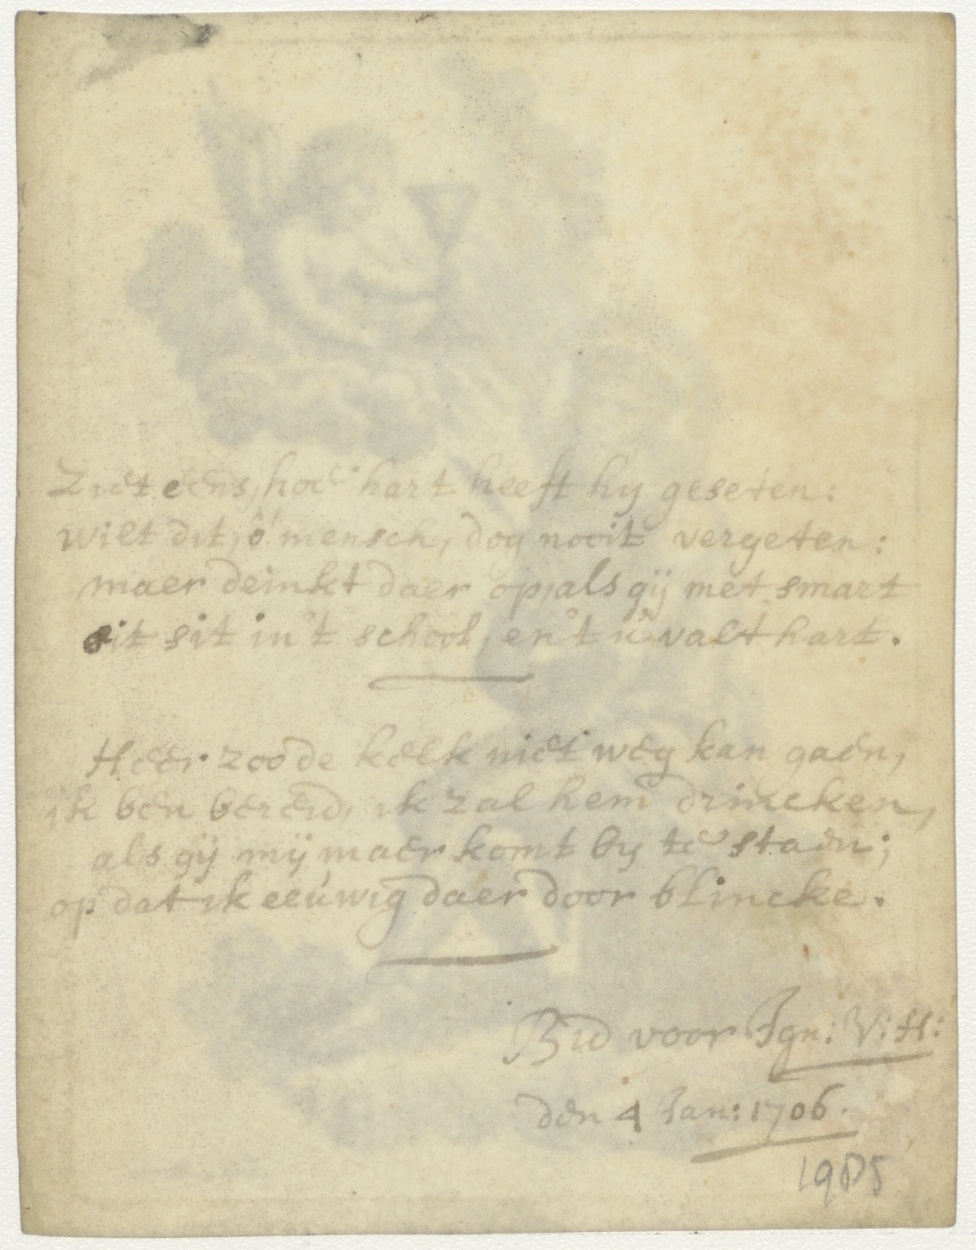 Ziet eens, hoe hart heeft hy geseten:
wilt dit, ô mensch, dog nooit vergeten:
maer deinkt daer op, als gij met smart
sit in't school, en't u valt hart.
Heer zoo de kelk niet weg kan gaen,
ik ben bereid, ik zal hem drincken,
als gij mij maer komt by te staen;
op dat ik eeuwig daer door blincke.
Bid voor Ign: V: H:
den 4 Jan: 1706.
1985